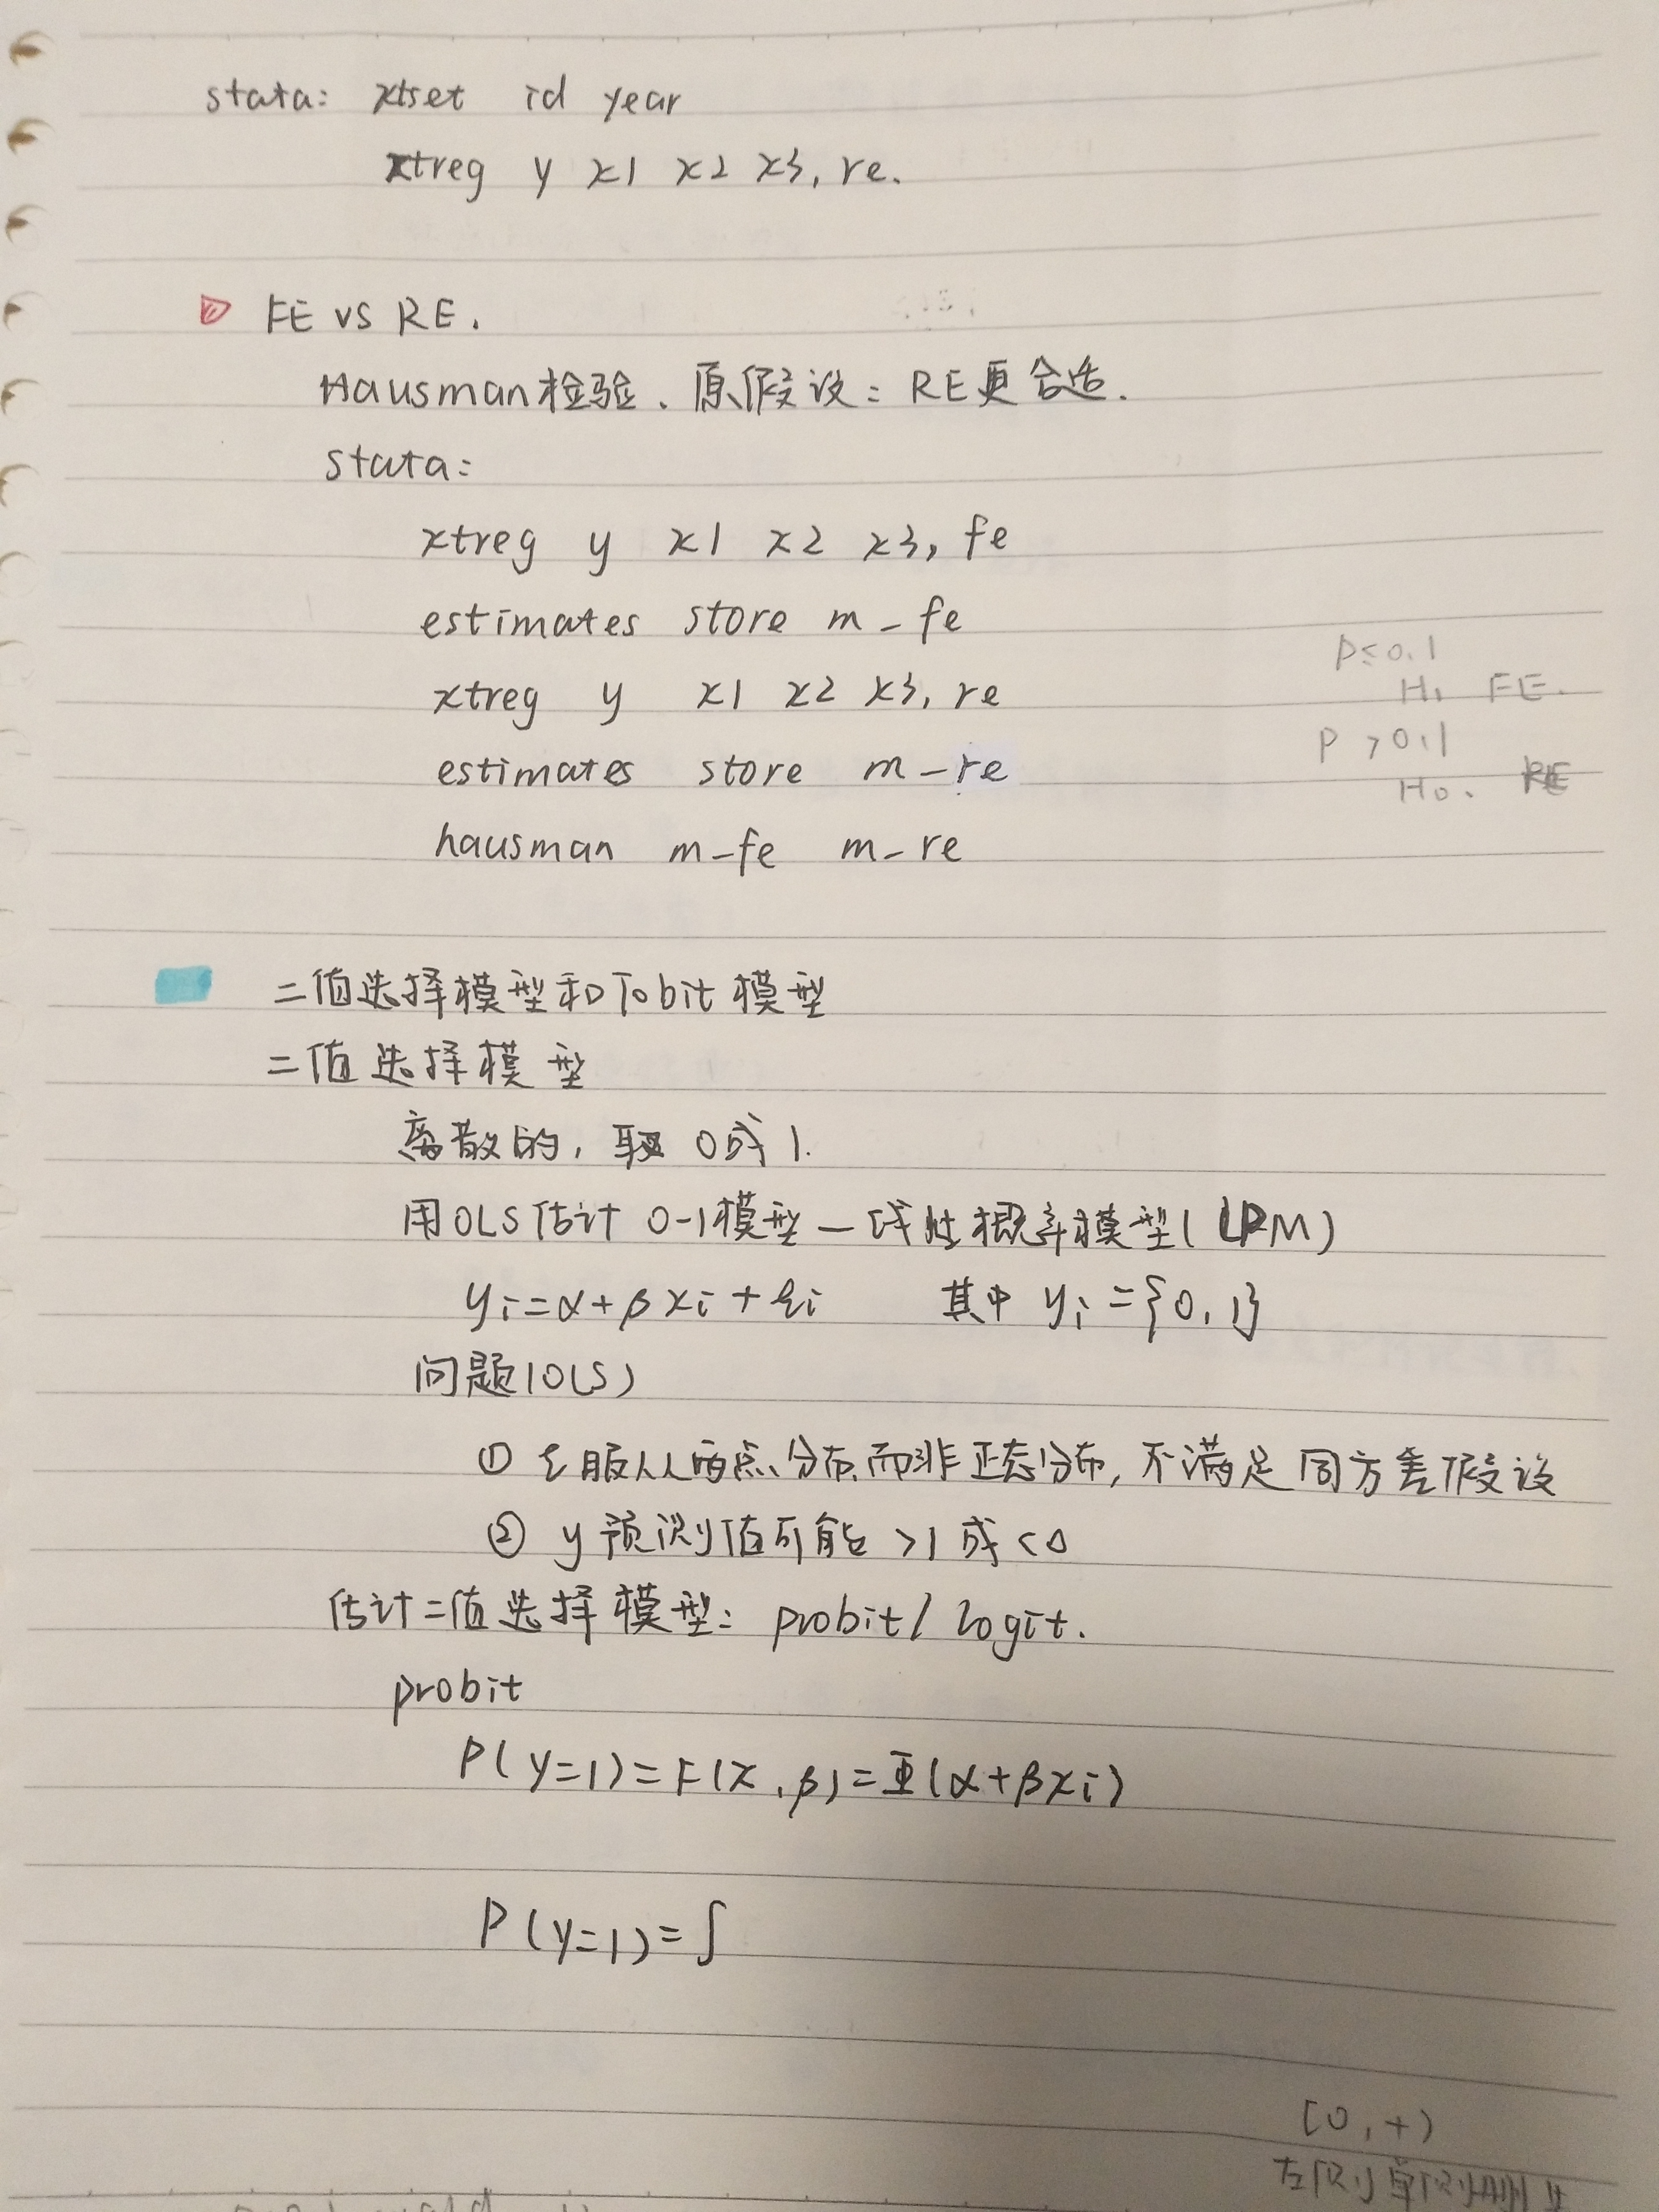 stata: xtset id year
xtreg y x1 x2 x3, re.
FE vs RE.
Hausman检验、原假设: RE更合适.
stata:
xtreg y x1 x2 x3, fe
estimates store m_fe
P≤0.1
xtreg y x1 x2 x3, re
H1 FE.
P >0.1
estimates store m_re
H0. RE
hausman m_fe m_re
二值选择模型和Tobit模型
二值选择模型
离散的, 取0或1.
用OLS估计 0-1模型—线性概率模型(LPM)
yi=α+βxi+εi 其中 yi={0,1}
问题(OLS)
① ε服从两点分布而非正态分布, 不满足同方差假设
② y预测值可能>1或<0
估计二值选择模型: probit/logit.
probit
P(y=1)=F(x,β)=Φ(α+βxi)
P(y=1)=∫
[0,+)
左侧单侧删